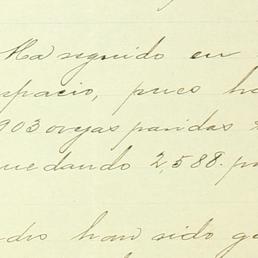 Ha seguido en
espacio, pues ha
903 ovejas paridas
quedando 2,588. pa
han sido ga